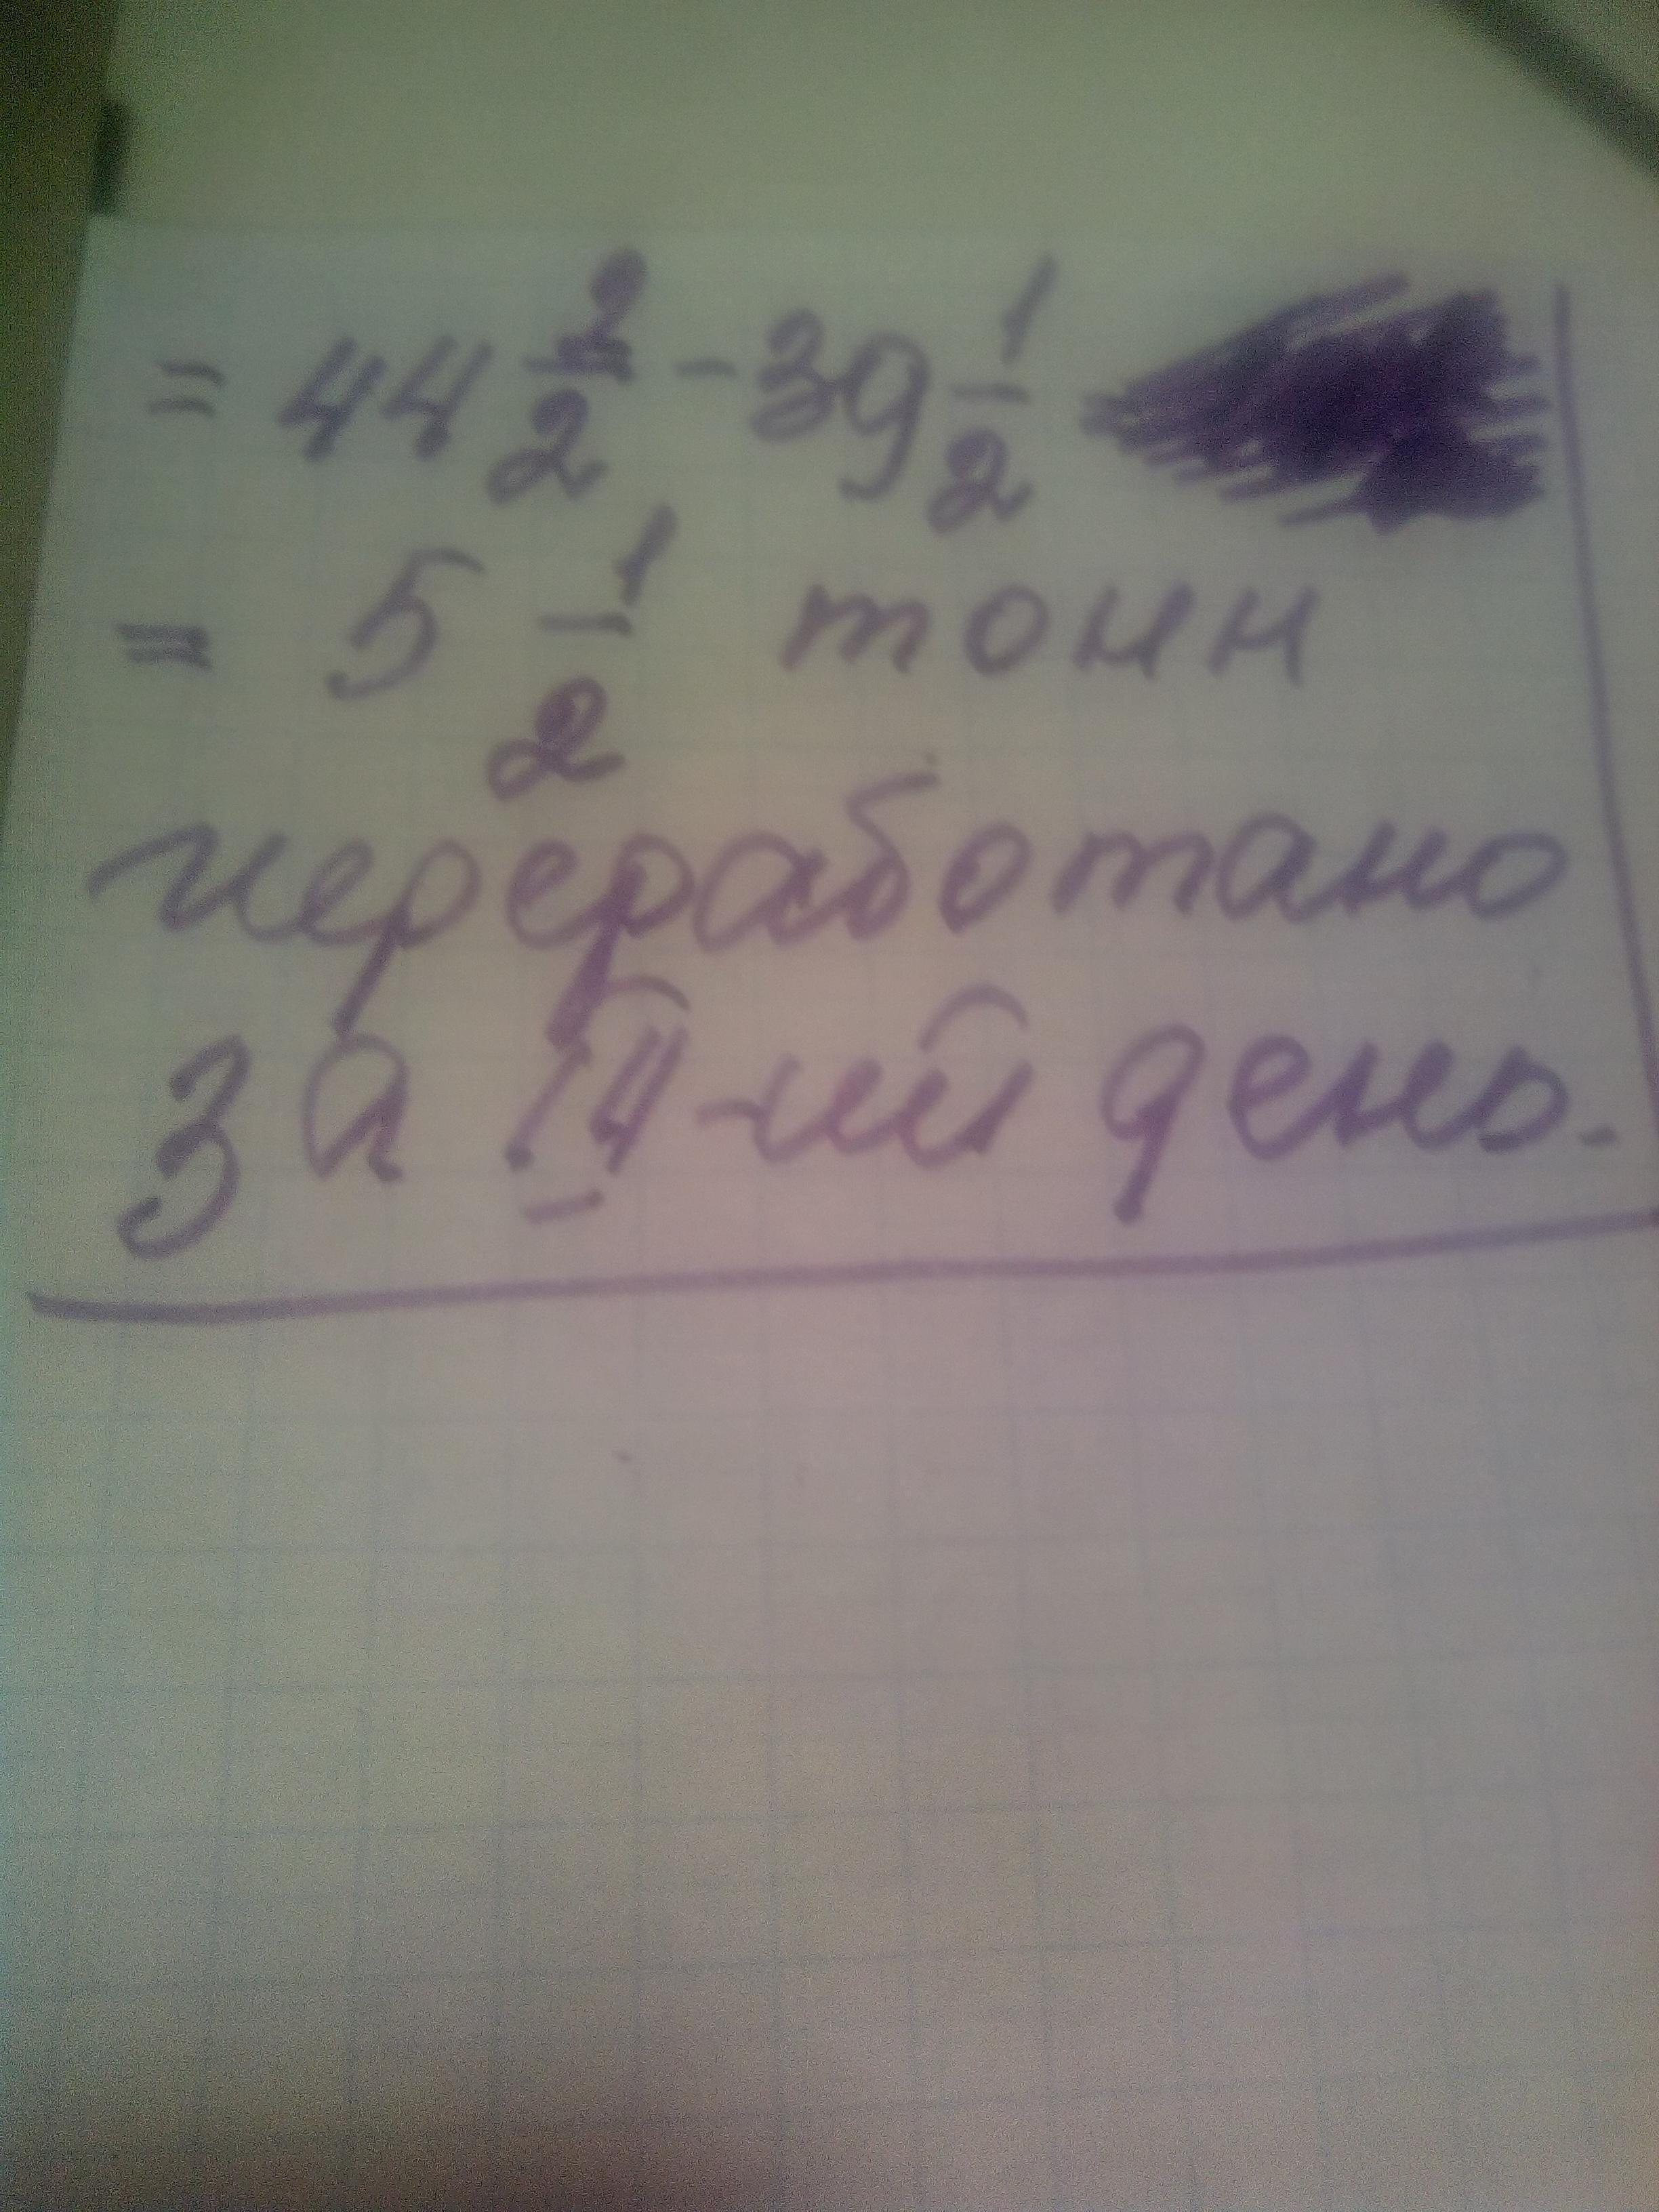 = 44 2/2 - 39 1/2
= 5 1/2 тонн
переработано
за II-ий день.